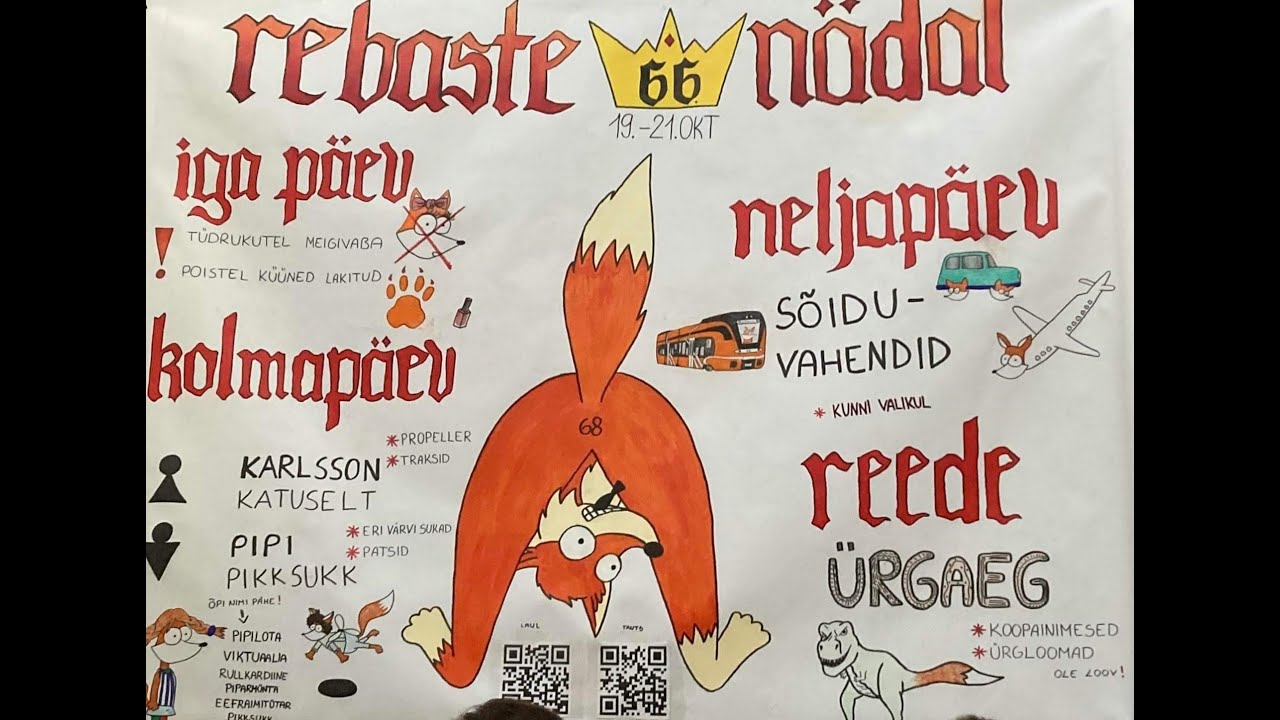 rebaste 66. nädal
19.-21.OKT
iga päev
! TÜDRUKUTEL MEIGIVABA
! POISTEL KÜÜNED LAKITUD
kolmapäev
KARLSSON
KATUSELT
* PROPELLER
* TRAKSID
PIPI
PIKKSUKK
* ERI VÄRVI SUKAD
* PATSID
ÕPI NIMI PÄHE!
PIPILOTA
VIKTUAALIA
RULLKARDIINE
PIPARMÜNTA
EEFRAIMITÜTAR
PIKKSUKK
68
LAUL
TANTS
neljapäev
SÕIDU-
VAHENDID
* KUNNI VALIKUL
reede
ÜRGAEG
* KOOPAINIMESED
* ÜRGLOOMAD
OLE LOOV!